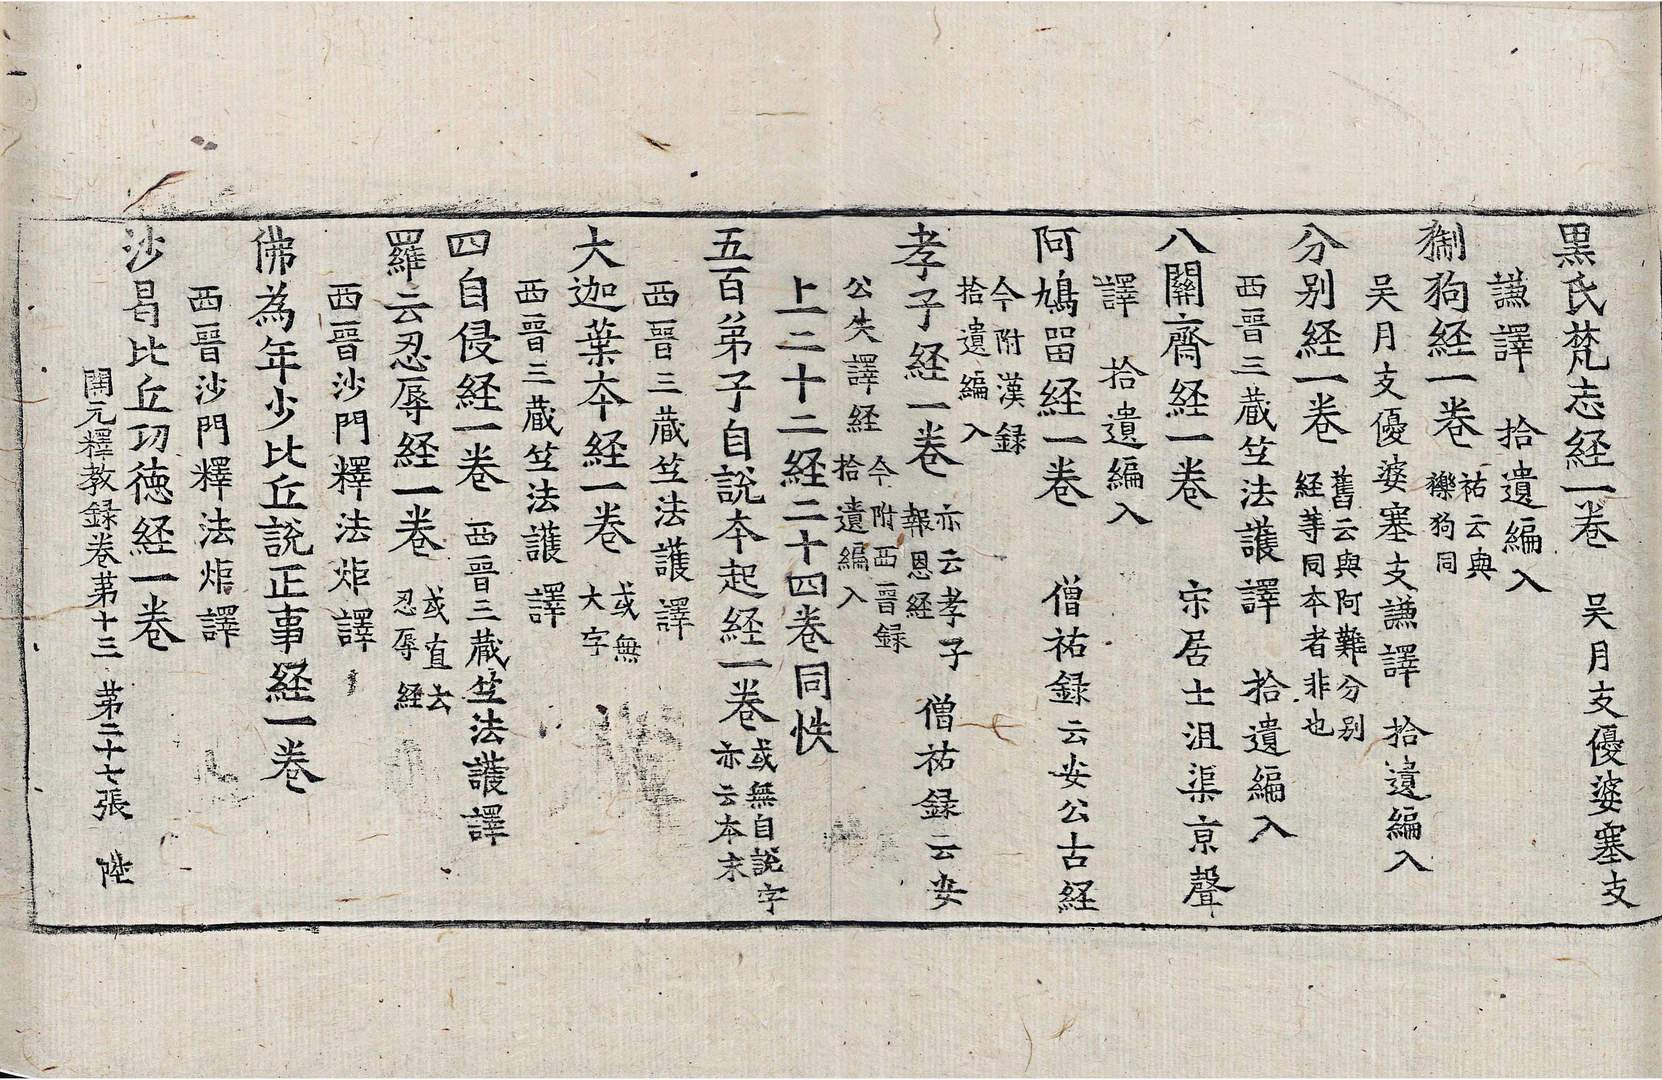 黒氏梵志経一巻　吴月支優婆塞支
謙譯　拾遺編入
猘狗経一巻　祐云與
㹎狗同
吴月支優婆塞支謙譯　拾遺編入
分别経一巻　舊云與阿難分别
経等同本者非也
西晋三蔵竺法護譯　拾遺編入
八關齋経一巻　宋居士沮渠京聲
譯　拾遺編入
阿鳩留経一巻　僧祐録云安公古経
今附漢録
拾遺編入
孝子経一巻　亦云孝子
報恩経　僧祐録云安
公失譯経　今附西晋録
拾遺編入
上二十二経二十四巻同帙
五百弟子自說本起経一巻　或無自說字
亦云本末
西晋三蔵竺法護譯
大迦葉本経一巻　或無
大字
西晋三蔵竺法護譯
四自侵経一巻　西晋三蔵竺法護譯
羅云忍辱経一巻　或直云
忍辱経
西晋沙門釋法炬譯
佛為年少比丘說正事経一巻
西晋沙門釋法炬譯
沙曷比丘功德経一巻
開元釋教録巻苐十三　苐二十七張　陞